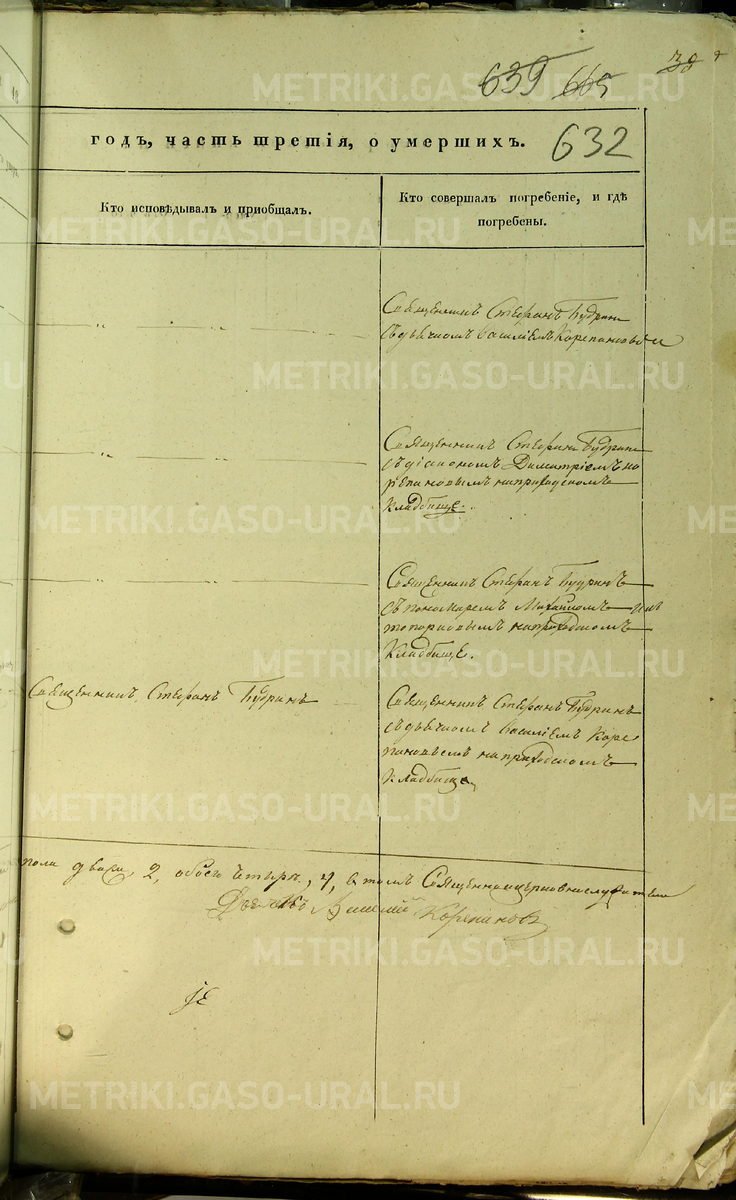 639 665 38
632
годъ, часть третія, о умершихъ.
Кто исповѣдывалъ и пріобщалъ.
Кто совершалъ погребеніе, и гдѣ
погребены.
Священникъ Стефанъ Будринъ
съ дьячкомъ Василіемъ Корепановым
Священникъ Стефанъ Будринъ
съ діакономъ Димитріемъ Ко
репановымъ на приходскомъ
кладбище.
Священникъ Стефанъ Будринъ
съ пономаремъ
Топорковымъ на приходскомъ
кладбище.
Священникъ Стефанъ Будринъ
Священникъ Стефанъ Будринъ
съ дьячкомъ Василіемъ Коре
пановымъ на приходскомъ
кладбище
пола двое, 2, обоего четыре, 4, в томъ Священноцерковнослужители
Дьячекъ Василий Корепановъ
METRIKI.GASO-URAL.RU